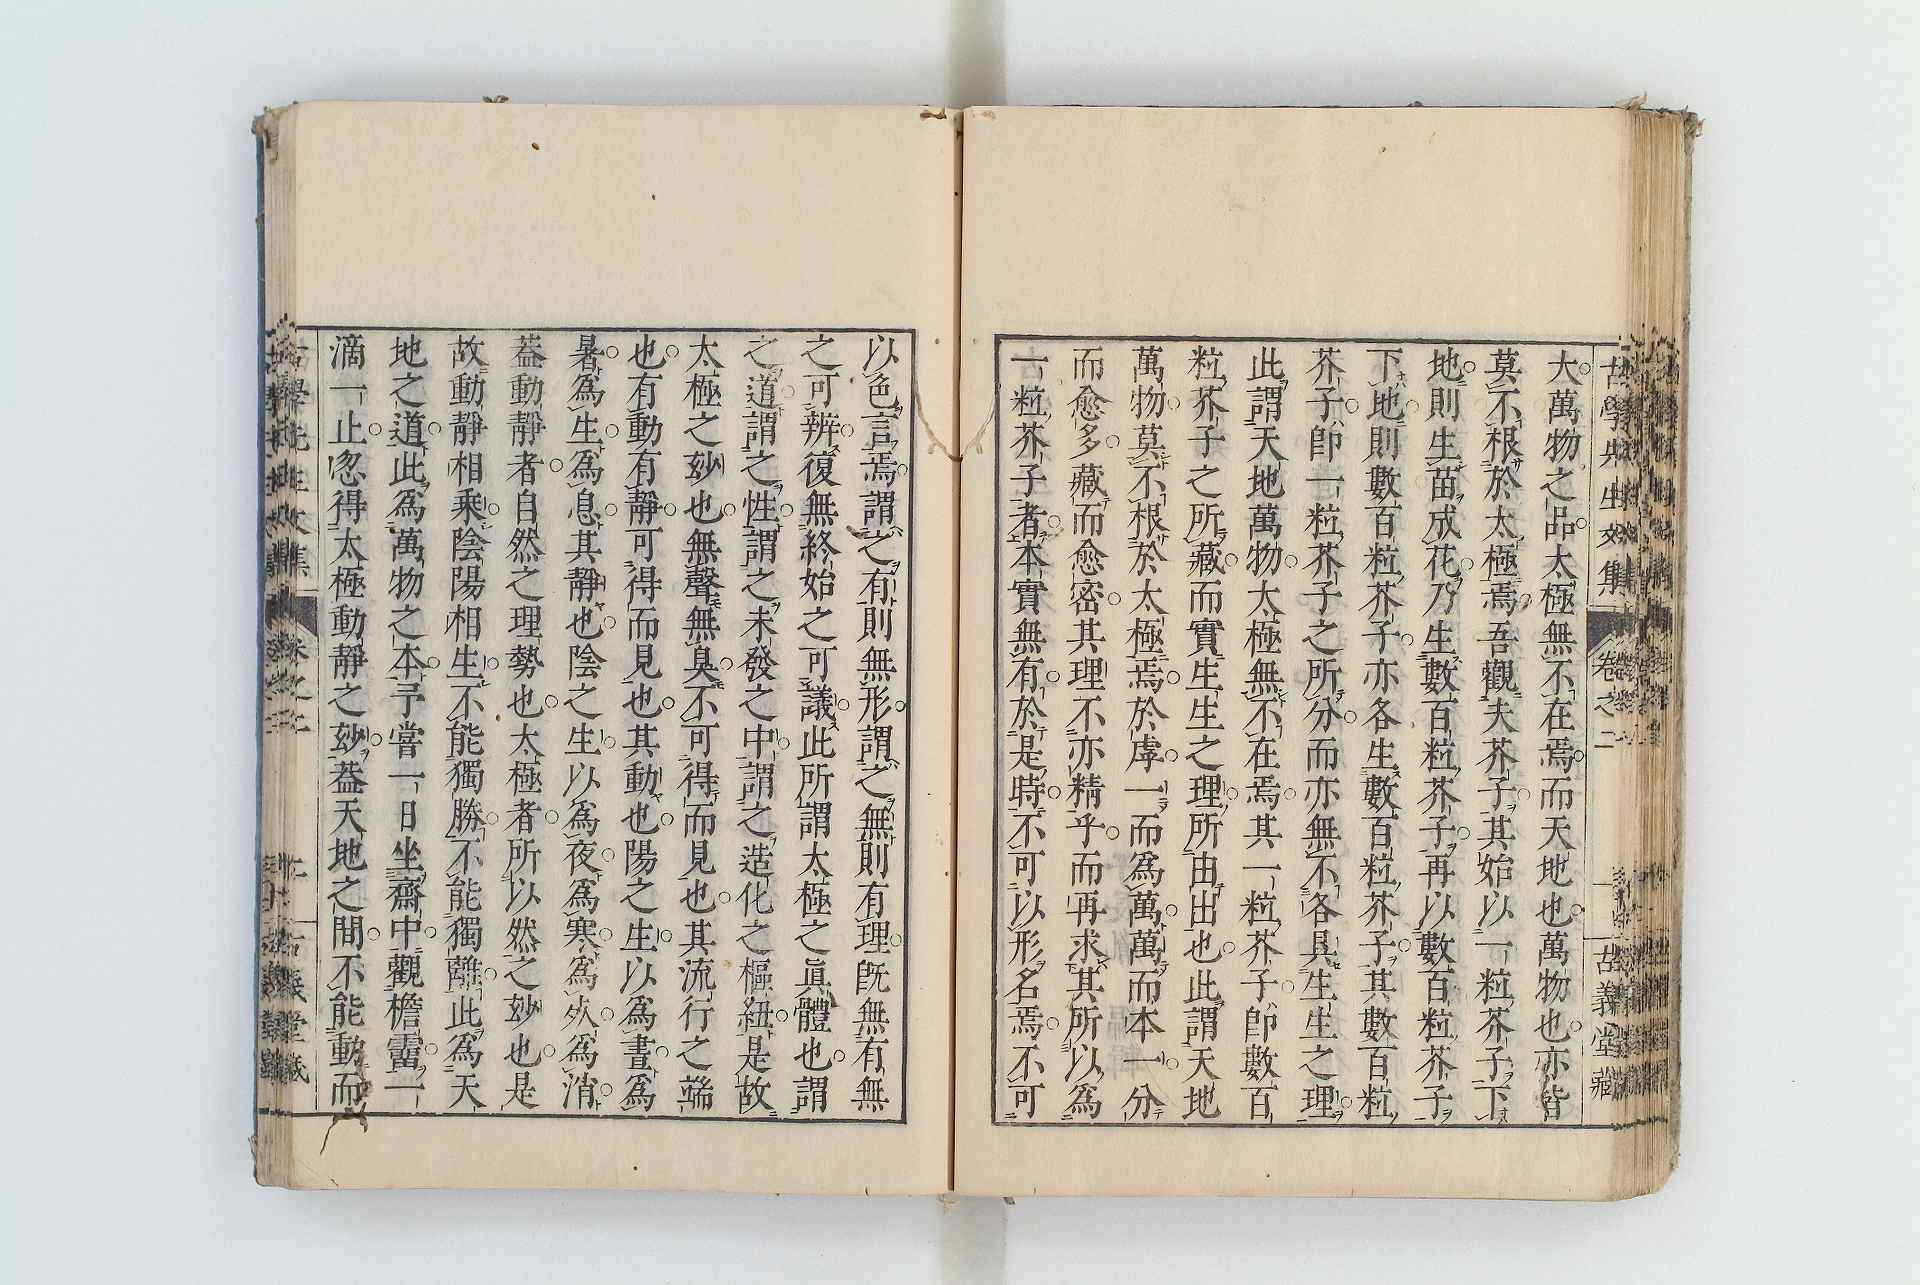 古學先生文集 卷之二 古義堂藏
大萬物之品太極無不在焉而天地也萬物也亦皆
莫不根於太極焉吾觀夫芥子其始以一粒芥子下
地則生苗成花乃生數百粒芥子再以數百粒芥子
下地則數百粒芥子亦各生數百粒芥子其數百粒
芥子卽一粒芥子之所分而亦無不各具生生之理
此謂天地萬物太極無不在焉其一粒芥子卽數百
粒芥子之所藏而實生生之理所由出也此謂天地
萬物莫不根於太極焉於虖一而爲萬萬而本一分
而愈多藏而愈密其理不亦精乎而再求其所以爲
一粒芥子者本實無有於是時不可以形名焉不可
以色言焉謂之有則無形謂之無則有理旣無有無
之可辨復無終始之可議此所謂太極之眞體也謂
之道謂之性謂之未發之中謂之造化之樞紐是故
太極之玅也無聲無臭不可得而見也其流行之端
也有動有靜可得而見也其動也陽之生以爲晝爲
暑爲生爲息其靜也陰之生以爲夜爲寒爲烑爲消
葢動靜者自然之理勢也太極者所以然之玅也是
故動靜相乘陰陽相生不能獨勝不能獨離此爲天
地之道此爲萬物之本予嘗一日坐齋中觀檐霤一
滴一止忽得太極動靜之玅葢天地之間不能動而
古學先生文集 卷之二 古義堂藏